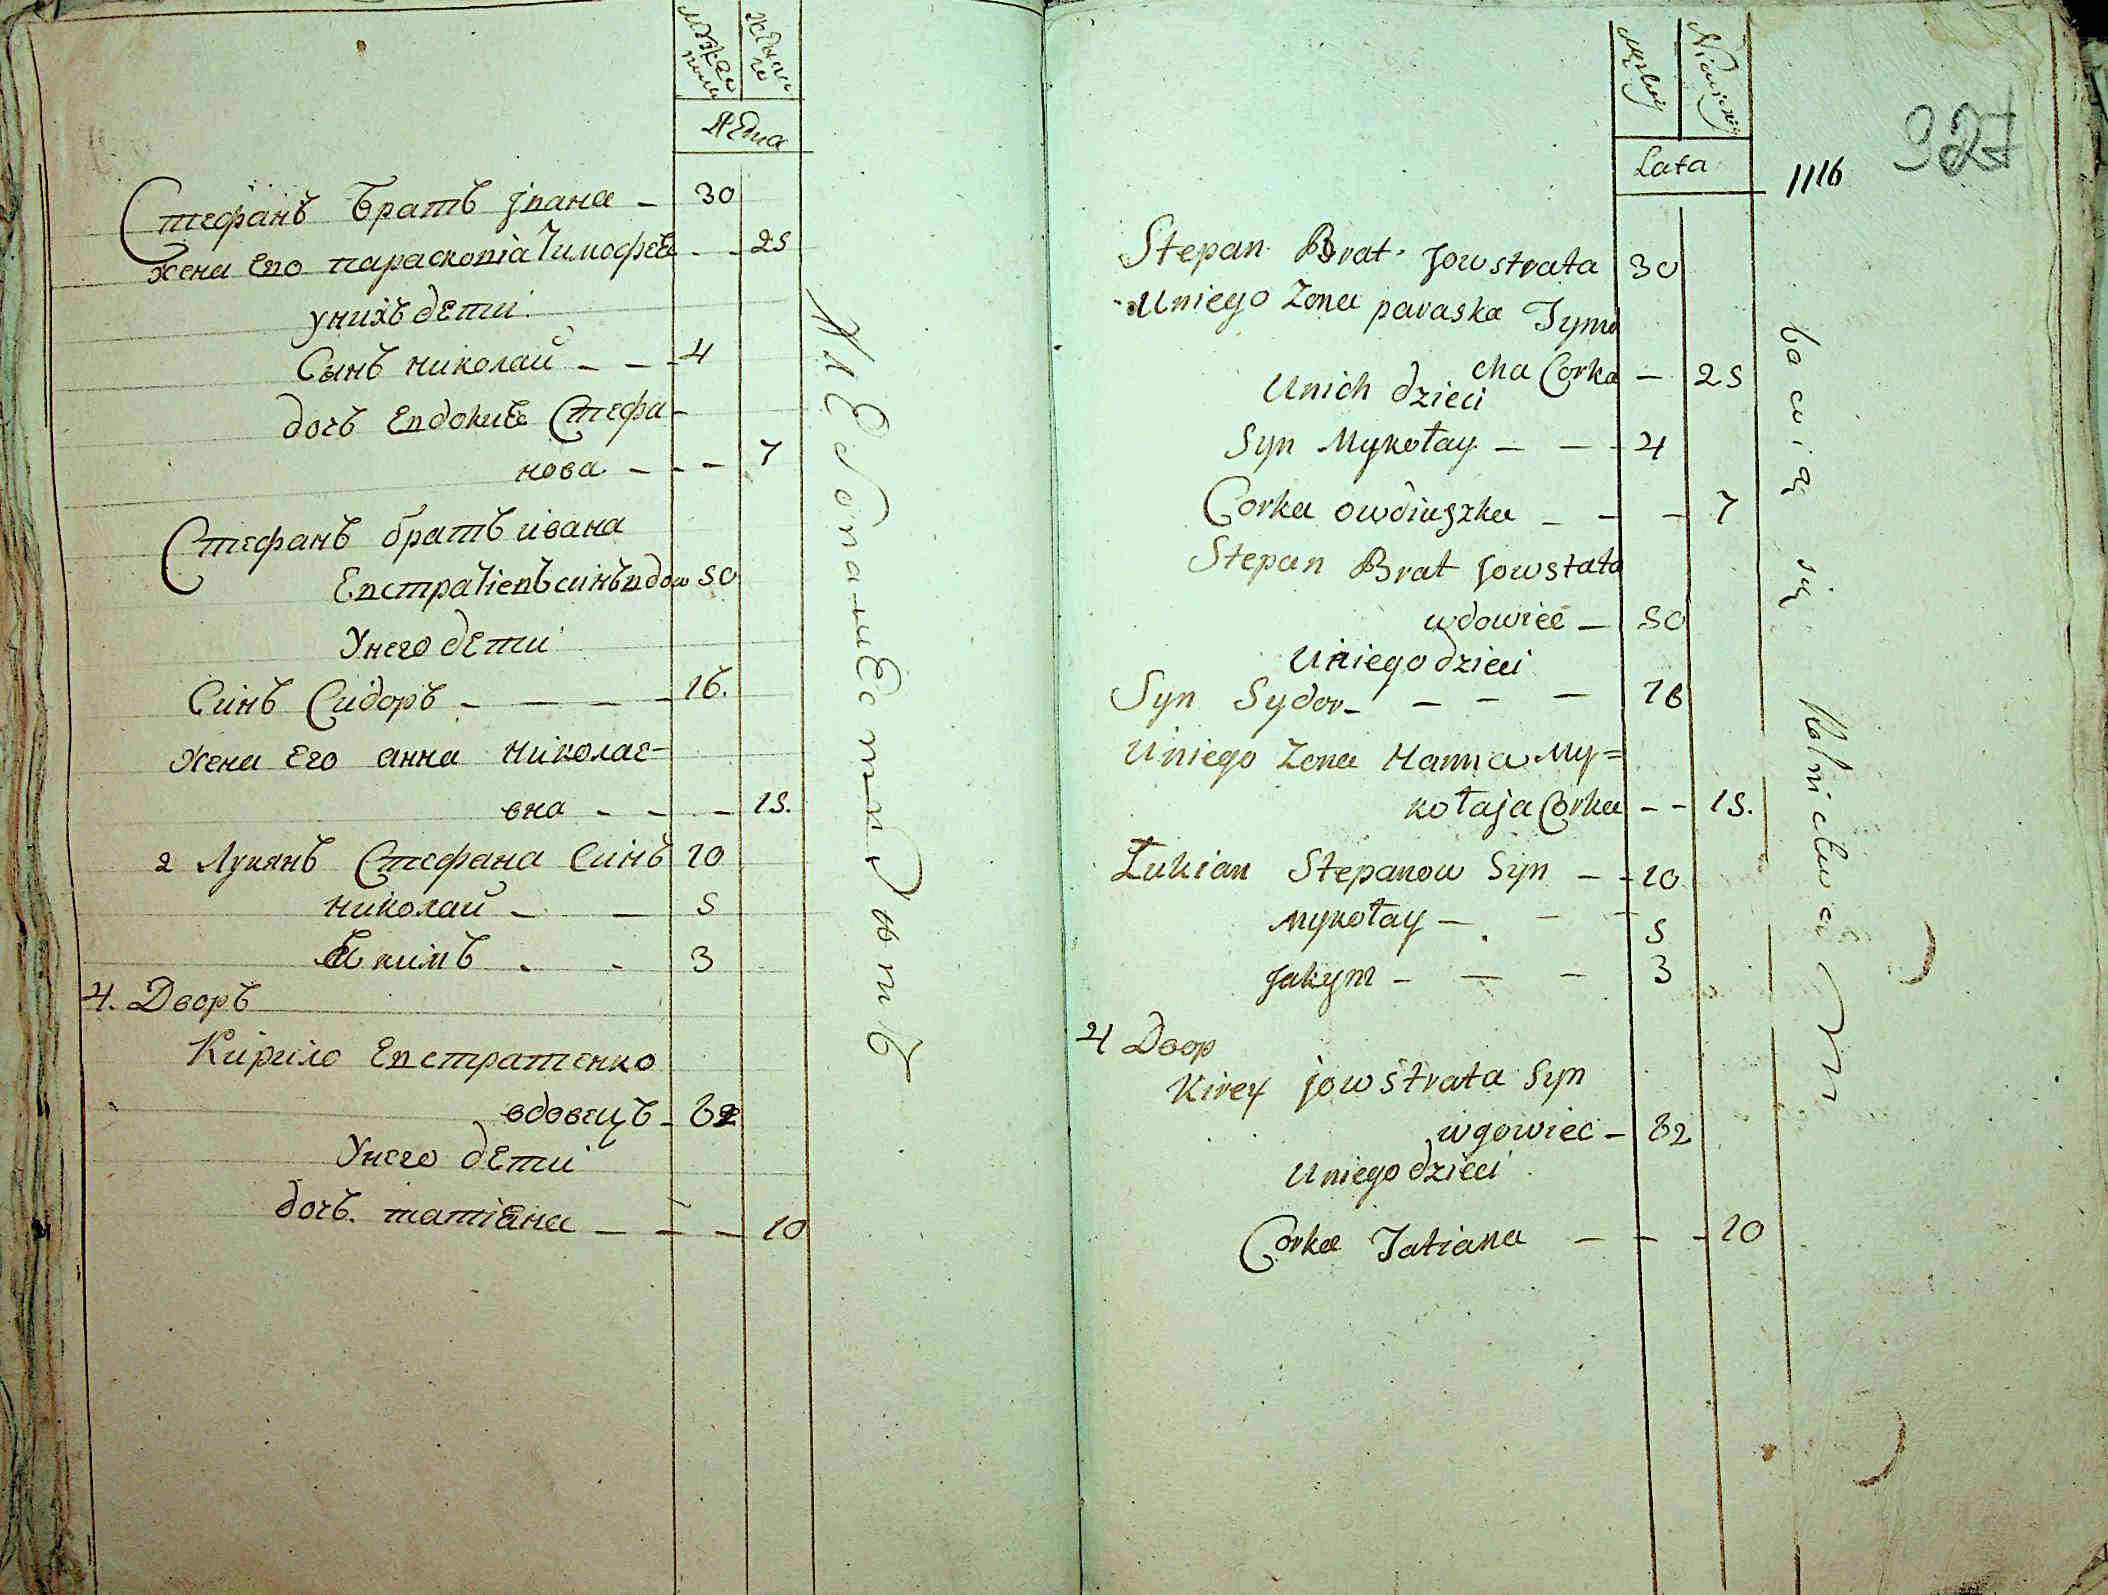 Мужеска пола
женска го
лЕта
Стефанъ братъ iвана – 30
жена Его параскопiа Тимофѣе – – 25
унихъ дЕти
Сынъ николай – – – 4
дочъ Евдокиѣ Стефа–
нова – – – 7
Стефанъ братъ ивана
Евстратiевъ синъ вдов 50
Унего дЕти
Синъ Сидоръ – – – – 16.
жена Его анна николае–
вна – – – 15.
2 Лукянъ Стефана Синъ 10
николай – – 5
Якимъ – – 3
4. Дворъ
Кирило Евстратенко
вдовецъ – 62
Унего дЕти
дочъ. татiана – – – 10
927
1116
Męskiey
Niewieskiey
Lata
Stepan Brat Jowstrata 30
Uniego Zona paraska Tymo
cha Corka – 25
Unich dzieci
Syn Mykołay – – – 4
Corka owdiuszka – – – 7
Stepan Brat Jowstata
wdowiec – 50
Uniego dzieci
Syn Sydor – – – – 16
Uniego Zona Hanna My=
kołaja Corka – – 15.
Łukian Stepanow Syn – – 10
Mykołay – – – 5
Jakym – – – 3
4 Dvop
Kirey jowstrata Syn
wgowiec – 62
Uniego dzieci
Corka Tatiana – – – 10
bawią się